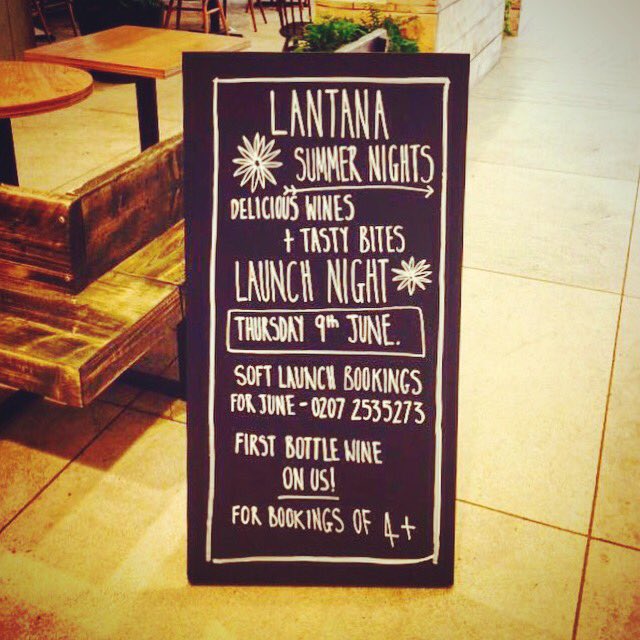 LANTANA
SUMMER NIGHTS
DELICIOUS WINES
+ TASTY BITES
LAUNCH NIGHT
THURSDAY 9th JUNE.
SOFT LAUNCH BOOKINGS
FOR JUNE - 0207 2535273
FIRST BOTTLE WINE
ON US!
FOR BOOKINGS OF 4+